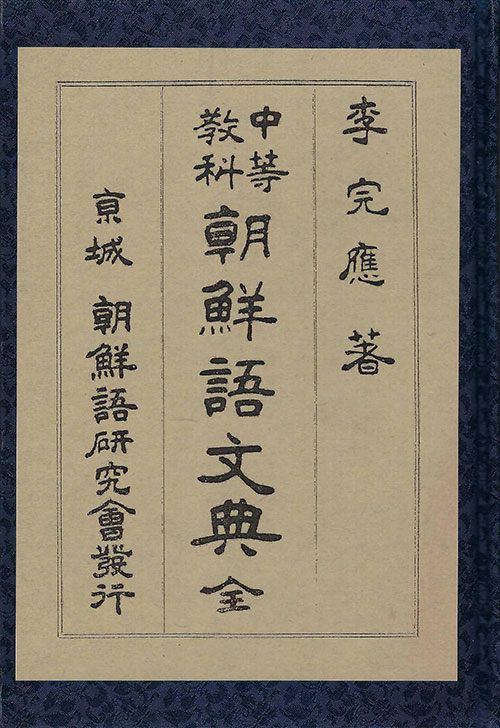 李完應 著
中等教科 朝鮮語文典 全
京城 朝鮮語研究會發行